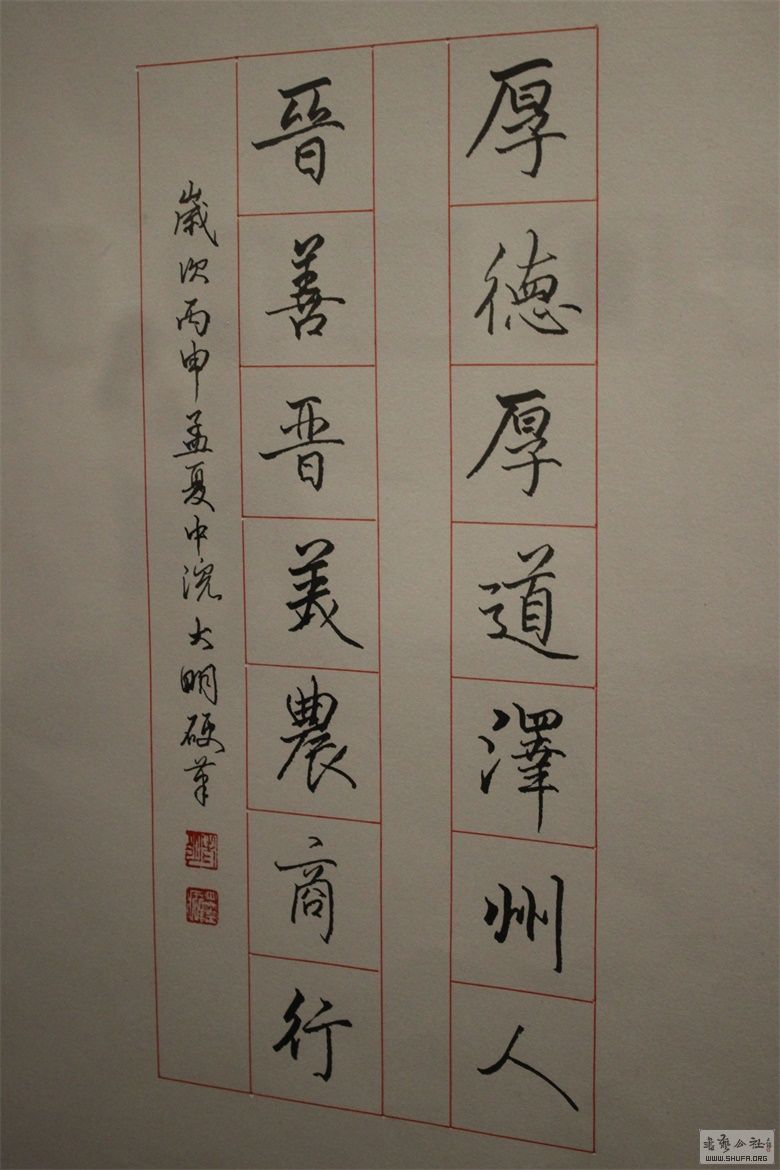 厚德厚道澤州人
晉善晋美農商行
歲次丙申孟夏中浣大明硬筆
WWW.SHUFA.ORG